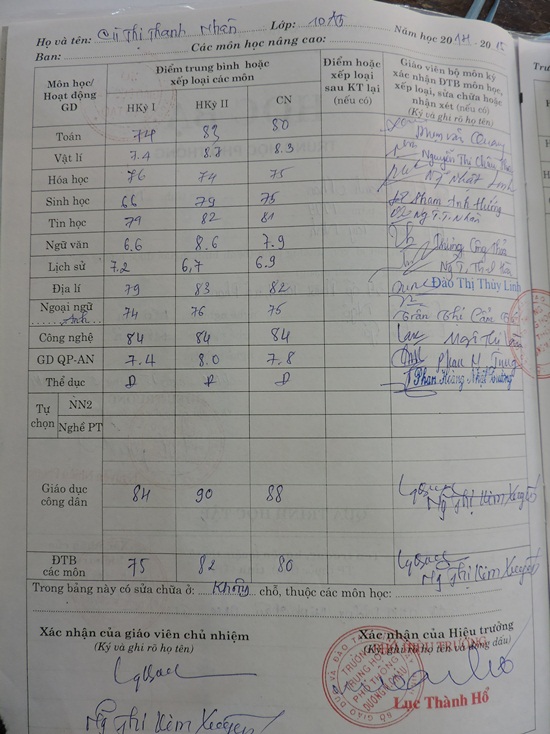 Họ và tên: Cù Thị Thanh Nhàn Lớp: 10 Năm học 20 .20 15
Ban: Các môn học nâng cao:
Môn học/ Hoạt động GD | Điểm trung bình hoặc xếp loại các môn | Điểm hoặc xếp loại sau KT lại (nếu có) | Giáo viên bộ môn ký xác nhận ĐTB môn học, xếp loại, sửa chữa hoặc nhận xét (nếu có) (Ký và ghi rõ họ tên)
HKỳ I HKỳ II CN
Toán 74 83 80
Vật lí 7.4 8.7 8.3 Nguyễn Thị
Hóa học 76 74 75 Ng Nhất Linh
Sinh học 66 79 75 Phạm Anh
Tin học 79 82 81 Ng T.T. Nhàn
Ngữ văn 6,6 8.6 7.9 Công
Lịch sử 7.2 6,7 6.9 Ng T.
Địa lí 79 83 82 Đào Thị Thùy Linh
Ngoại ngữ Anh 74 76 75 Trần Thị Cẩm
Công nghệ 84 84 84 Ngô Thị
GD QP-AN 7.4 8.0 7.8 Phan
Thể dục Đ Đ Đ Phan Hoàng Nhật
Tự chọn NN2
Nghề PT
Giáo dục công dân 84 90 88 Ng Thị Kim Xuyến
ĐTB các môn 75 82 80 Ng Thị Kim Xuyến
Trong bảng này có sửa chữa ở: Không chỗ, thuộc các môn học:
Xác nhận của giáo viên chủ nhiệm
(Ký và ghi rõ họ tên)
Ng Thị Kim Xuyến
Xác nhận của Hiệu trưởng
(Ký, ghi rõ họ tên và đóng dấu)
TRƯỜNG TRUNG HỌC PHỔ THÔNG
Lục Thành Hổ